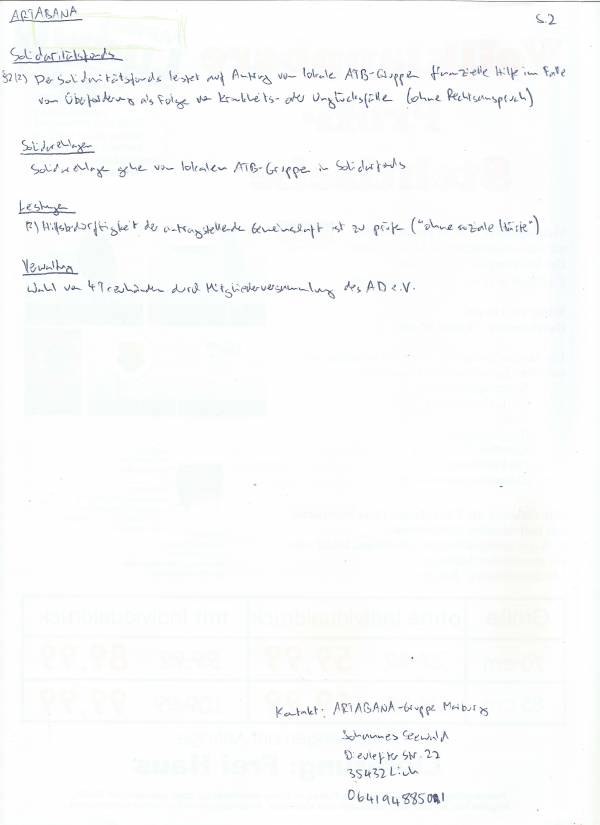 ARTABANA S.2
Solidaritätsfonds
§2(2) Der Solidaritätsfonds leistet auf Antrag von lokale ATB-Gruppen finanzielle Hilfe im Falle
von Überforderung als Folge von Krankheits- oder Unglücksfälle (ohne Rechtsanspruch)
Solidareinlagen
Solidareinlagen gehen von lokalen ATB-Gruppen in Solidarfonds
Leistungen
(2) Hilfsbedürftigkeit der antragstellende Gemeinschaft ist zu prüfen ("ohne soziale Härte")
Verwaltung
Wahl von 4 Treuhändern durch Mitgliederversammlung des AD e.V.
Größe ohne Individualdruck mit Individualdruck
70 cm 59,99 89,99
85 cm 99,99
Frei Haus
Kontakt: ARTABANA-Gruppe Marburg
Johannes Seewald
Str. 22
35432 Lich